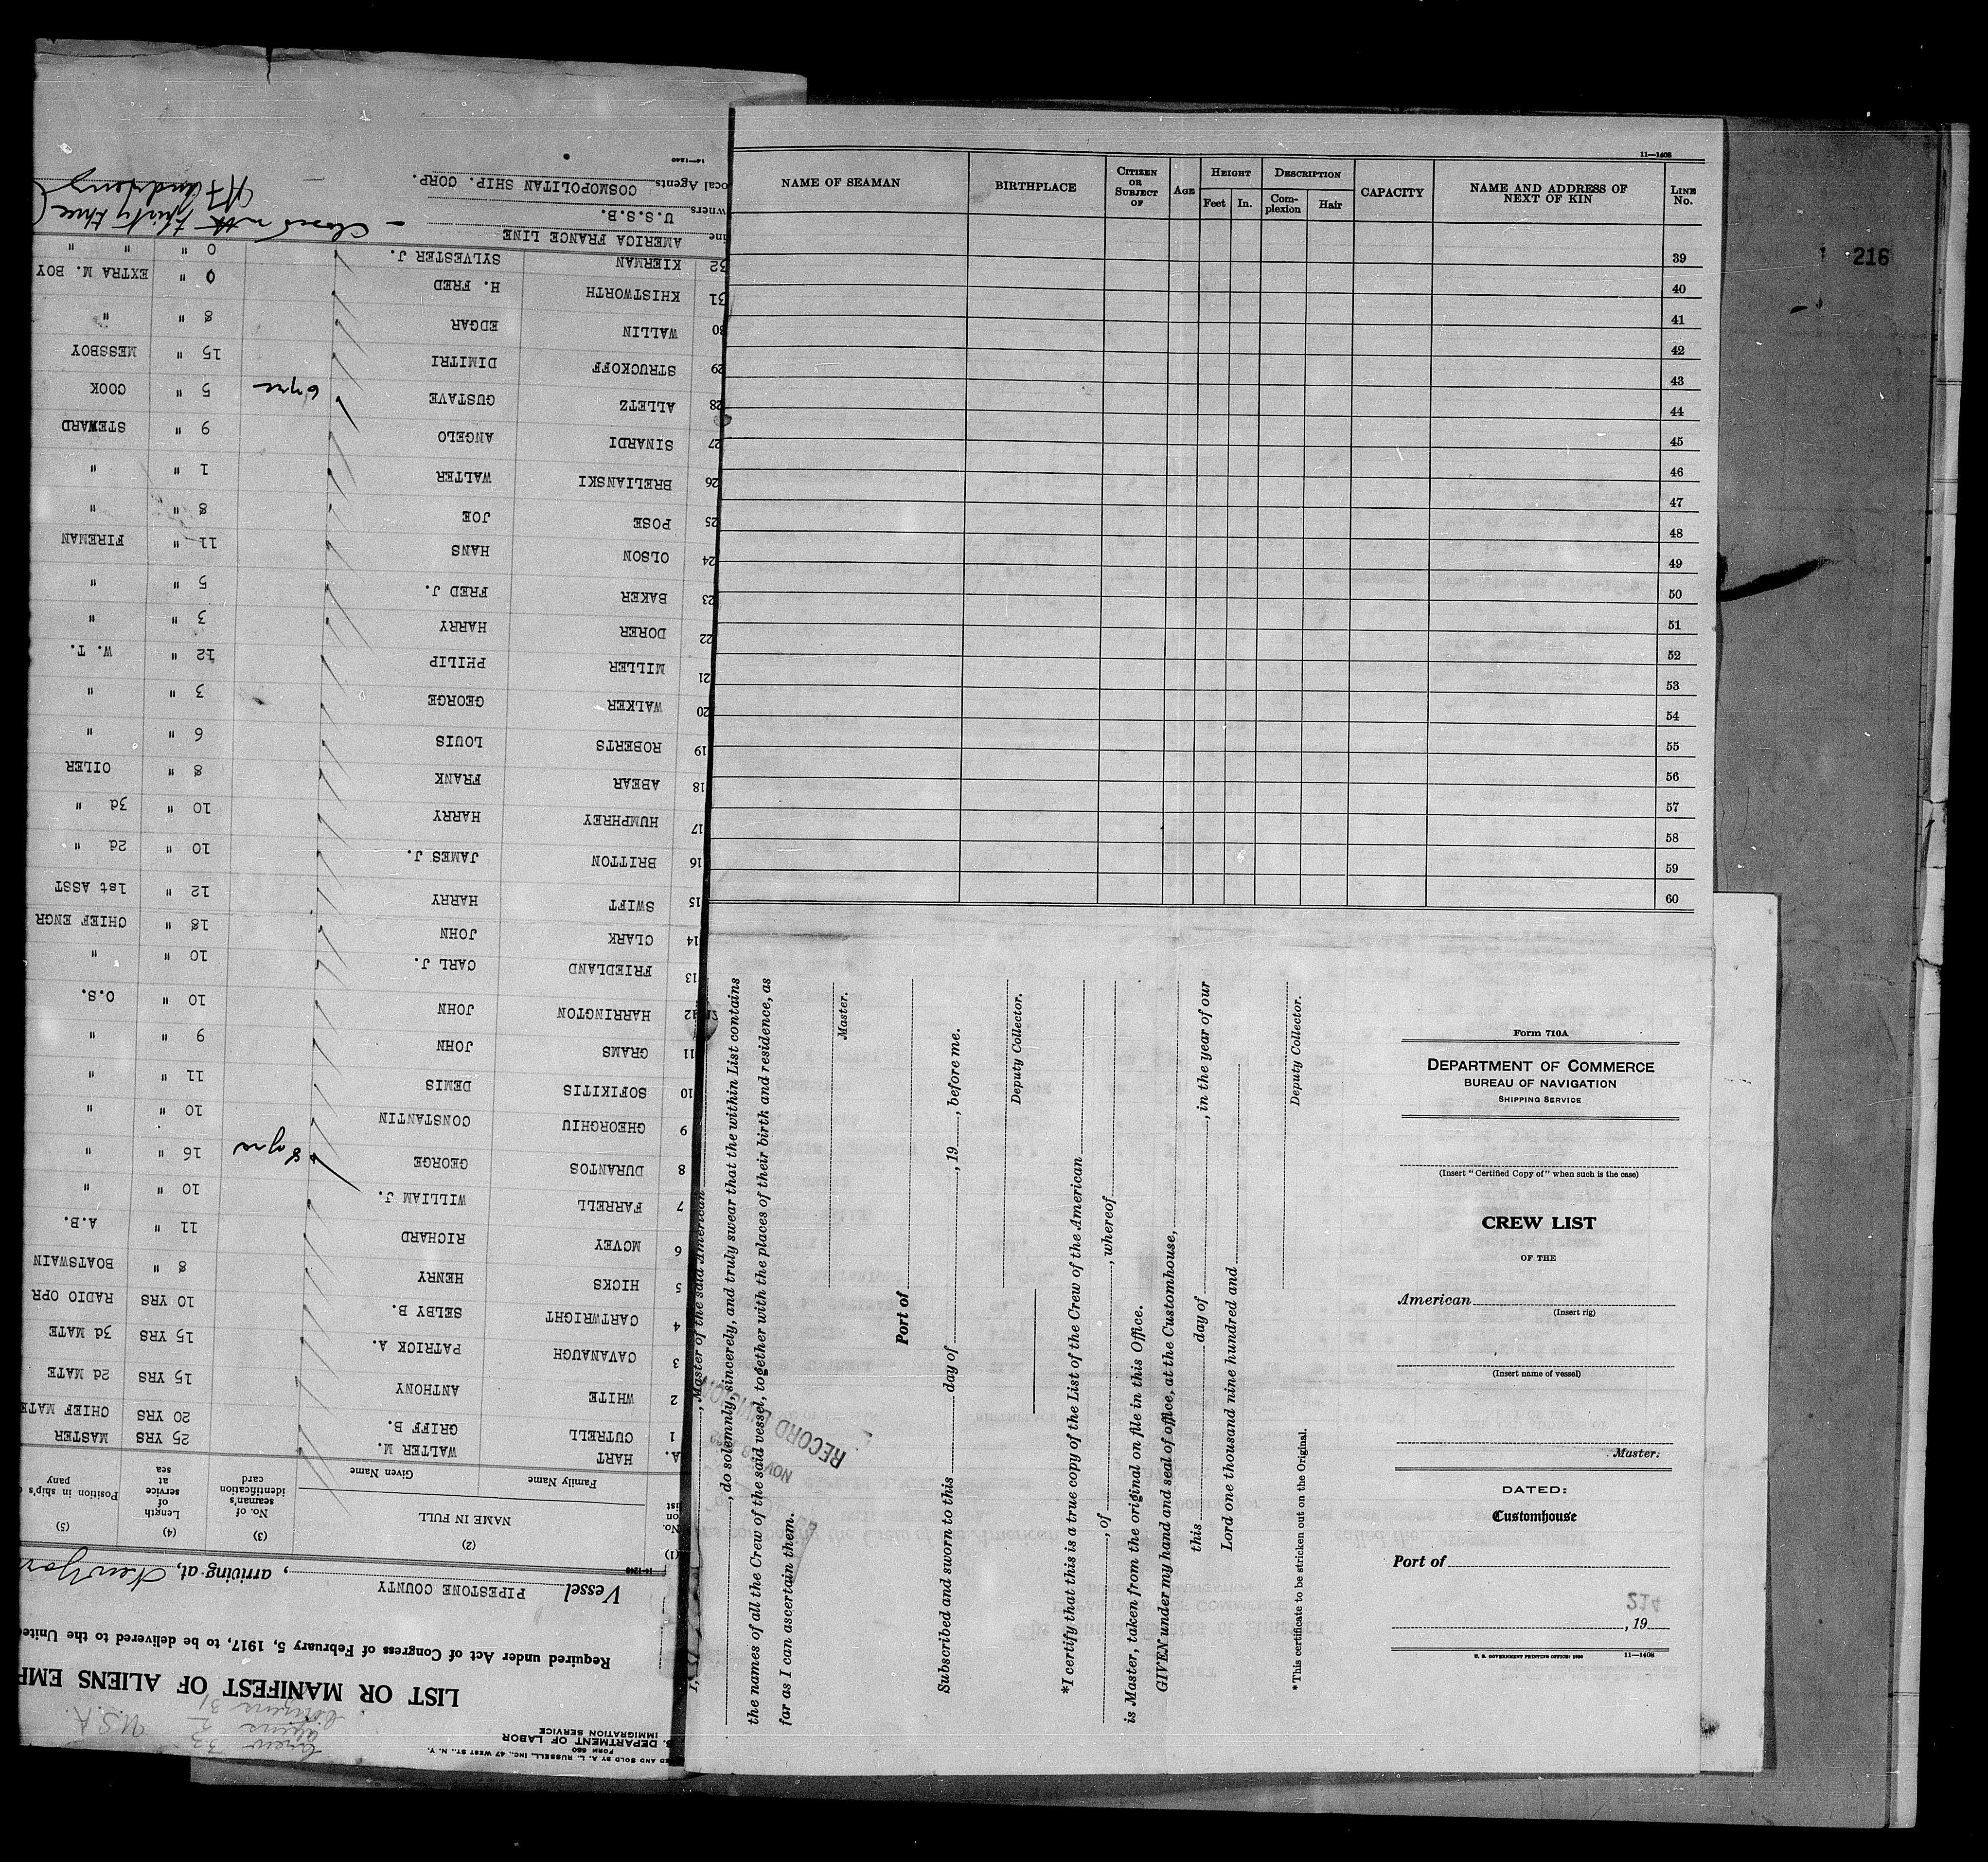 11—1408
NAME OF SEAMAN | BIRTHPLACE | CITIZEN OR SUBJECT OF | AGE | HEIGHT Feet In. | DESCRIPTION Complexion Hair | CAPACITY | NAME AND ADDRESS OF NEXT OF KIN | LINE No.
39
40
41
42
43
44
45
46
47
48
49
50
51
52
53
54
55
56
57
58
59
60
216
, Master of the said American
, do solemnly, sincerely, and truly swear that the within List contains
the names of all the Crew of the said vessel, together with the places of their birth and residence, as
far as I can ascertain them.
Master.
Port of
Subscribed and sworn to this day of , 19 , before me.
Deputy Collector.
*I certify that this is a true copy of the List of the Crew of the American
, of , whereof
is Master, taken from the original on file in this Office.
GIVEN under my hand and seal of office, at the Customhouse,
this day of , in the year of our
Lord one thousand nine hundred and
Deputy Collector.
*This certificate to be stricken out on the Original.
RECORD DIVISION
NOV
Form 710A
DEPARTMENT OF COMMERCE
BUREAU OF NAVIGATION
SHIPPING SERVICE
(Insert "Certified Copy of" when such is the case)
CREW LIST
OF THE
American
(Insert rig)
(Insert name of vessel)
Master.
DATED:
Customhouse
Port of
214
, 19
U. S. GOVERNMENT PRINTING OFFICE: 11—1408
ED AND SOLD BY A. L. RUSSELL, INC., 47 WEST ST., N. Y.
FORM 680
S. DEPARTMENT OF LABOR
IMMIGRATION SERVICE
Crew 33
aliens 2
Citizens 31
U.S.A.
LIST OR MANIFEST OF ALIENS EMP
Required under Act of Congress of February 5, 1917, to be delivered to the Unite
Vessel PIPESTONE COUNTY , arriving at, New Yor
14-1240
(1) No. on list | (2) NAME IN FULL Family Name Given Name | (3) No. of seaman's identification card | (4) Length of service at sea | (5) Position in ship's pany
A. HART WALTER M. 25 YRS MASTER
1 CUTRELL GRIFF B. 20 YRS CHIEF MATE
2 WHITE ANTHONY 15 YRS 2d MATE
3 CAVANAUGH PATRICK A 15 YRS 3d MATE
4 CARTWRIGHT SELBY B. 10 YRS RADIO OPR
5 HICKS HENRY 8 " BOATSWAIN
6 MCVEY RICHARD 11 " A.B.
7 FARRELL WILLIAM J. 10 " "
8 DURANTOS GEORGE 8 yrs 16 " "
9 GHEORGHIU CONSTANTIN 10 " "
10 SOFIKITIS DEMIS 11 " "
11 GRAMS JOHN 9 " "
12 HARRINGTON JOHN 10 " O.S.
13 FRIEDLAND CARL J. 10 " "
14 CLARK JOHN 18 " CHIEF ENGR
15 SWIFT HARRY 12 " 1st ASST
16 BRITTON JAMES J. 10 " 2d "
17 HUMPHREY HARRY 10 " 3d "
18 ABEAR FRANK 8 " OILER
19 ROBERTS LOUIS 6 " "
20 WALKER GEORGE 3 " "
21 MILLER PHILIP 12 " W. T.
22 DORER HARRY 3 " "
23 BAKER FRED J. 5 " "
24 OLSON HANS 11 " FIREMAN
25 POSE JOE 8 " "
26 BRELIANSKI WALTER 1 " "
27 SINARDI ANGELO 9 " STEWARD
28 ALLETZ GUSTAVE 6 yrs 5 " COOK
29 STRUCKOFF DIMITRI 15 " MESSBOY
30 WALLIN EDGAR 8 " "
31 KHISTWORTH H. FRED 0 " EXTRA M. BOY
32 KIERMAN SYLVESTER J. 0 " " "
ine AMERICA FRANCE LINE
wners U.S.S.B. — Closes with thirty three (
ocal Agents COSMOPOLITAN SHIP. CORP.
14—1240